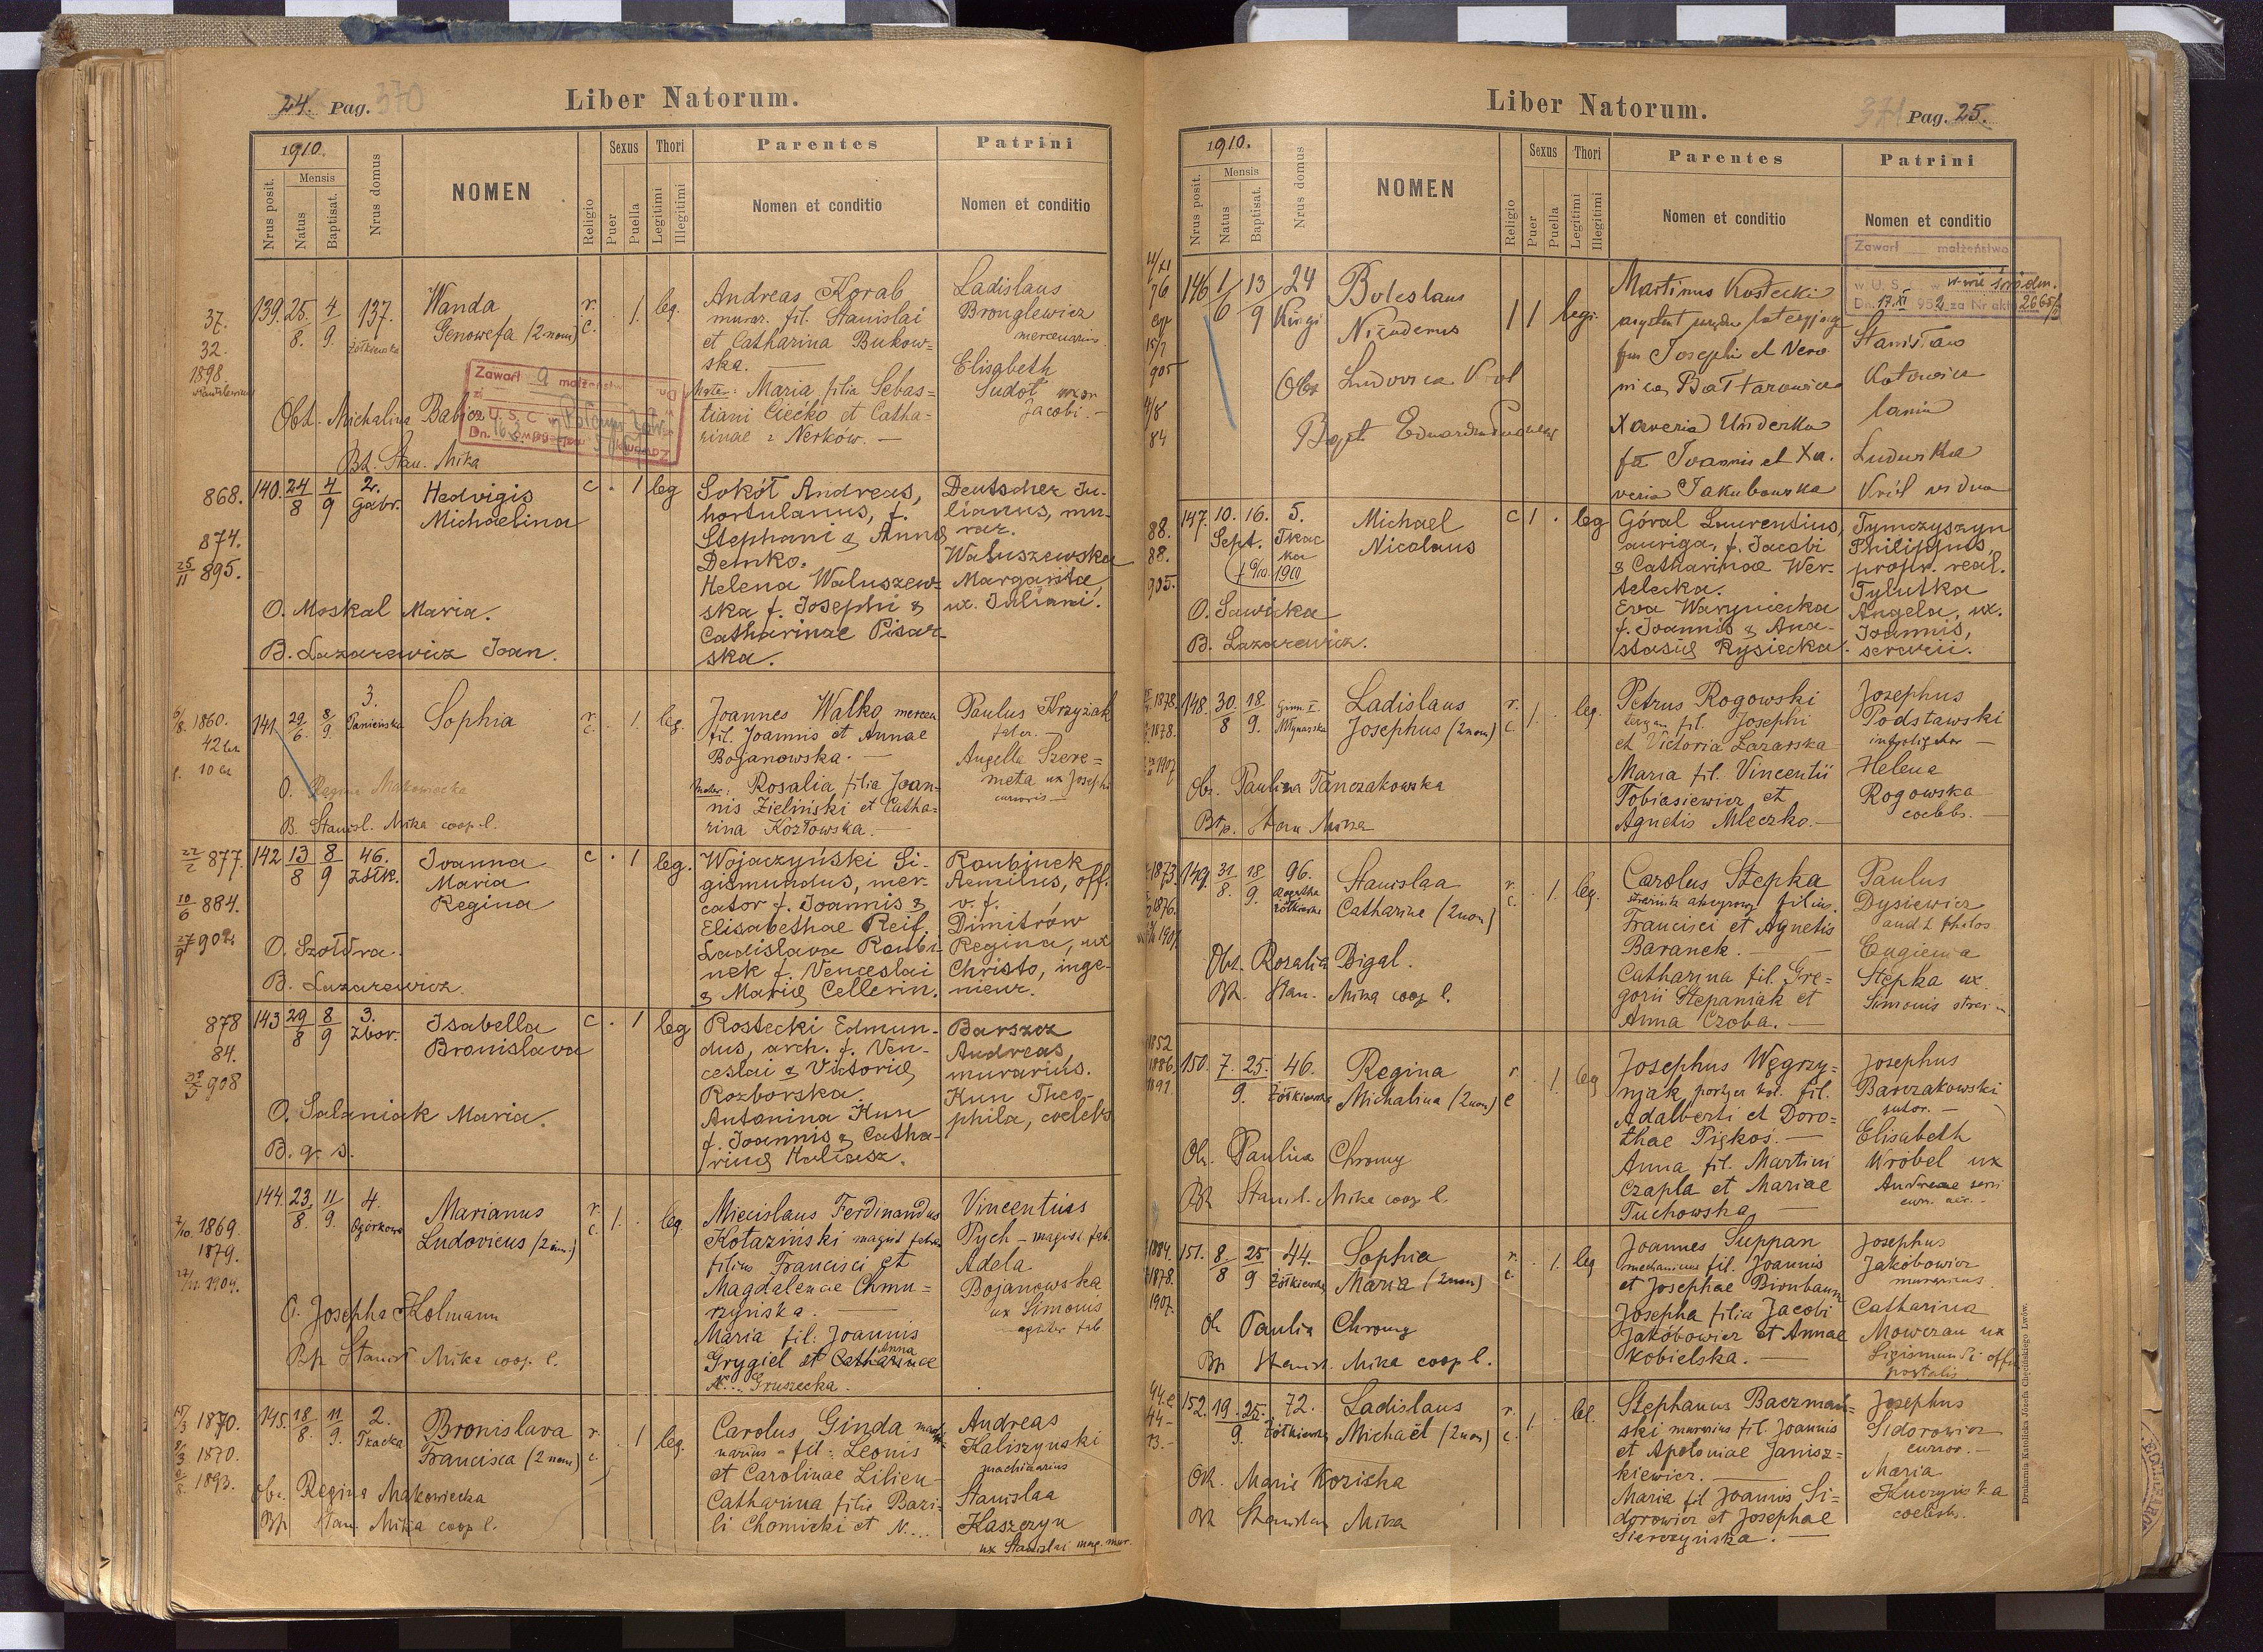 24. Pag. 370
Liber Natorum.
1910.
Nrus posit.
Mensis
Natus
Baptisat.
Nrus domus
NOMEN
Religio
Sexus
Puer
Puella
Thori
Legitimi
Illegitimi
Parentes
Nomen et conditio
Patrini
Nomen et conditio
37.
32.
1898.
139. 25. 4 137.
8. 9. Żółkiewska
Wanda
Genowefa (2 nom)
r. c. . 1. leg.
Andreas Korab
murar. fil. Stanislai
et Catharina Bukow=
ska.
Mater: Maria filia Sebas=
tiani Ciećko et Catha-
rinae z Nerków. —
Ladislaus
Bronglewicz
mercenarius.
Elisabeth
Sudoł uxor
Jacobi. —
Zawarł a małżeństwo
U. S. C. w
Dn.
Obst. Michalina Babicz
Bt. Stan. Mika
868.
874.
25/11 895.
140. 24 4 2.
8 9 Gabr.
Hedvigis
Michaelina
c . 1 leg
Sokół Andreas,
hortulanus, f.
Stephani & Annę
Demko.
Helena Waluszew-
ska f. Josephi &
Catharinae Pisar-
ska.
Deutscher Ju-
lianus, mu-
rar.
Waluszewska
Margarita
ux. Juliani.
O. Moskal Maria.
B. Lazarewicz Joan.
1860.
141 29 8 3.
6. 9. Panieńska
Sophia
r. c. . 1. leg.
Joannes Walko mercen
fil. Joannis et Annae
Bojanowska. —
Mater: Rosalia filia Joan-
nis Zieliński et Catha-
rina Kozłowska. —
Paulus Krzyżak
faber. —
Angella Szere=
meta ux Josephi
cursoris —
O. Regina Makowiecka
B. Stanisl. Mika coop. l.
22/2 877.
10/6 884.
27/9 902.
142 13 8 46.
8 9 Żółk.
Joanna
Maria
Regina
c . 1 leg.
Wojaczyński Si-
gismundus, mer-
cator f. Joannis &
Elisabethae Reif.
Ladislava Raubi-
nek f. Venceslai
& Marię Cellerin.
Raubinek
Aemilus, off.
v. f.
Dimitrów
Regina, ux
Christo, inge-
nieur.
O. Szołdra.
B. Lazarewicz.
878
84.
908
143 29 8 3.
8 9 Zbor.
Isabella
Bronislava
c . 1 leg
Rostecki Edmun-
dus, arch. f. Ven-
ceslai & Victorię
Rozborska.
Antonina Kun
f. Joannis & Catha-
rinę Haliasz.
Barszcz
Andreas
murarius.
Kun Theo-
phila, coelebs
O. Salaniak Maria.
B. q. s.
1869.
1879.
1904.
144. 23. 11 4.
8. 9. Ogórkowa
Marianus
Ludovicus (2 im.)
r. c. 1. . leg.
Miecislaus Ferdinandus
Kotazinski magist fabr
filius Francisci et
Magdalenae Chmu=
rzyńska. —
Maria fil: Joannis
Anna
Grygiel et Catharinae
N... Gruszecka.
Vincentius
Pych - magist. fab.
Adela
Bojanowska
ux Simonis
O. Josepha Holmann
Bp Stanisł Mika coop. l.
15/3 1870.
1870.
1893.
145. 18 11 2.
8. 9. Tkacka
Bronislava
Francisca (2 nom)
r. c. . 1 leg.
Carolus Ginda
fil: Leonis
et Carolinae Lilien-
Catharina filia Bazi-
li Chomicki et N....
Andreas
Kaliszynski
machinarius
Stanislaa
Kaszczyn
ux Stanislai mag. mur.
Obs. Regina Makowiecka
Bp Stan. Mika coop l.
Liber Natorum.
371 Pag. 25.
1910.
Nrus posit.
Mensis
Natus
Baptisat.
Nrus domus
NOMEN
Religio
Sexus
Puer
Puella
Thori
Legitimi
Illegitimi
Parentes
Nomen et conditio
Patrini
Nomen et conditio
Zawarł małżeństwo
w U. S. C. w
Dn. 17.XI 1952 za Nr akt. 2665/
146 1 13 24
6 9
Boleslaus
Nicodemus
1 1 legi.
Martinus Kostecki
fius Josephi et Vero
nica Bałtarowicz
Xaveria Underka
fa Joannis et Xa.
veria Jakubowska
Stanisłaus
Kotowicz
Ludwika
Król vidua
Obs Ludovica Król
Bapt
88.
88.
905.
147. 10. 16. 5.
Sept. Tkac
ka
Michael
Nicolaus
c 1 . leg
Góral Laurentius,
auriga, f. Jacobi
& Catharinae Wer-
telecka.
Eva Waryniecka
f. Joannis & Ana-
stasię Rysiecka.
Tymczyszyn
Philippus,
propr. real.
Tylutka
Angela, ux.
Joannis,
servii.
O. Sawicka
B. Lazarewicz.
1878.
1878.
1907
148. 30. 18
8 9. Młynarska
Ladislaus
Josephus (2 nom)
r. c. 1. . leg.
Petrus Rogowski
fil. Josephi
et Victoria Lazarska
Maria fil. Vincentii
Tobiasiewicz et
Agnetis Mleczko. —
Josephus
Podstawski
introligator —
Helena
Rogowska
coelebs. —
Obs. Paulina Tanczakowska
Btp. Stan Mika
1873
1876.
1907
149. 31 18 96.
8. 9. Rogatka
żółkiewska
Stanislaa
Catharine (2 nom)
r. c. . 1. leg.
Carolus Stepka
filius.
Francisci et Agnetis
Baranek. —
Catharina fil. Gre=
gorii Stepaniak et
Anna Czoba. —
Paulus
Dysiewicz
Eugienia
Stepka ux
Simonis
Obs. Rozalia Bigal.
Bt. Stan. Mika coop l.
1852
1886.
1891
150. 7. 25. 46.
9. Żółkiewska
Regina
Michalina (2 nom)
r. c . 1. leg
Josephus Węgrzy=
njak portyer kol. fil.
Adalberti et Doro=
thae Piękoś. —
Anna fil. Martini
Czapla et Mariae
Tuchowska
Josephus
Barczakowski
sutor. —
Elisabeth
Wróbel ux
Andreae
Ob. Paulina Chromy
Bt Stanisl. Mika coop l.
1884.
1878.
1907.
151. 8 25 44.
8 9 Żółkiewska
Sophia
Maria (2 nom)
r. c. . 1. leg
Joannes Suppan
mechanicus fil. Joannis
et Josephae Birnbaum
Josepha filia Jacobi
Jakóbowicz et Annae
Kobielska. —
Josephus
Jakóbowicz
murarius
Catharina
Mowczan ux
Sigismundi offi
postalis.
Ob Paulia Chromy
Bp Stanisl. Mika coop l.
152. 19. 25. 72.
9. Żółkiewska
Ladislaus
Michaël (2 nom)
r. c. 1. . leg.
Stephanus Baczmań=
ski murarius fil. Joannis
et Apoloniae Janisz-
kiewicz. —
Maria fil Joannis Si=
dorowicz et Josephae
Sierczyńska. —
Josephus
Sidorowicz
cursor. —
Maria
Kuczyńska
coelebs.
Ob. Maria Kozicka
Bt Stanislaus Mika
Drukarnia Katolicka Józefa Chęcińskiego Lwów.